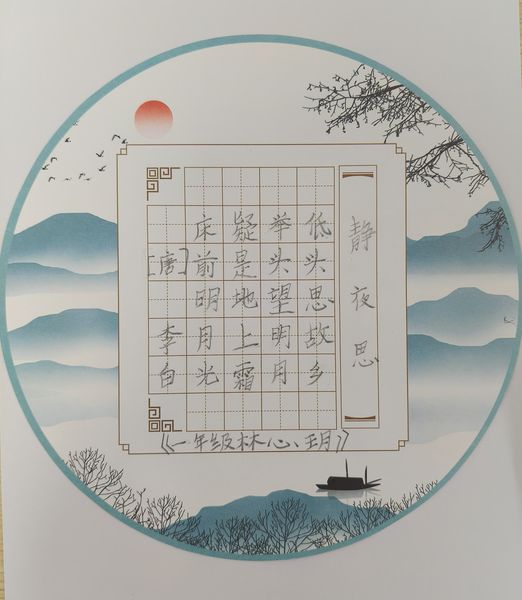 静夜思
[唐]李白
床前明月光
疑是地上霜
举头望明月
低头思故乡
《一年级林心玥》